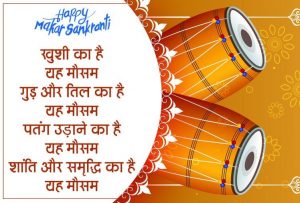 Happy
Makar Sankranti
खुशी का है
यह मौसम
गुड़ और तिल का है
यह मौसम
पतंग उड़ाने का है
यह मौसम
शांति और समृद्धि का है
यह मौसम